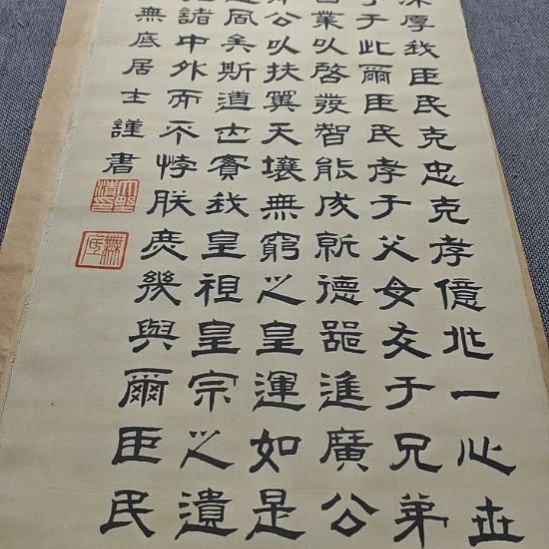 厚我臣民克忠克孝億兆一心世
于此爾臣民孝于父母友于兄弟
業以啓發智能成就德器進廣公
公以扶翼天壤無窮之皇運如是
風矣斯道也實我皇祖皇宗之遺
諸中外而不悖朕庶幾與爾臣民
無底居士謹書
無底